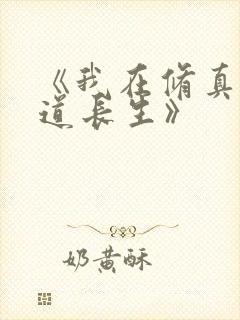 《我在修真
道长生》
奶黄酥